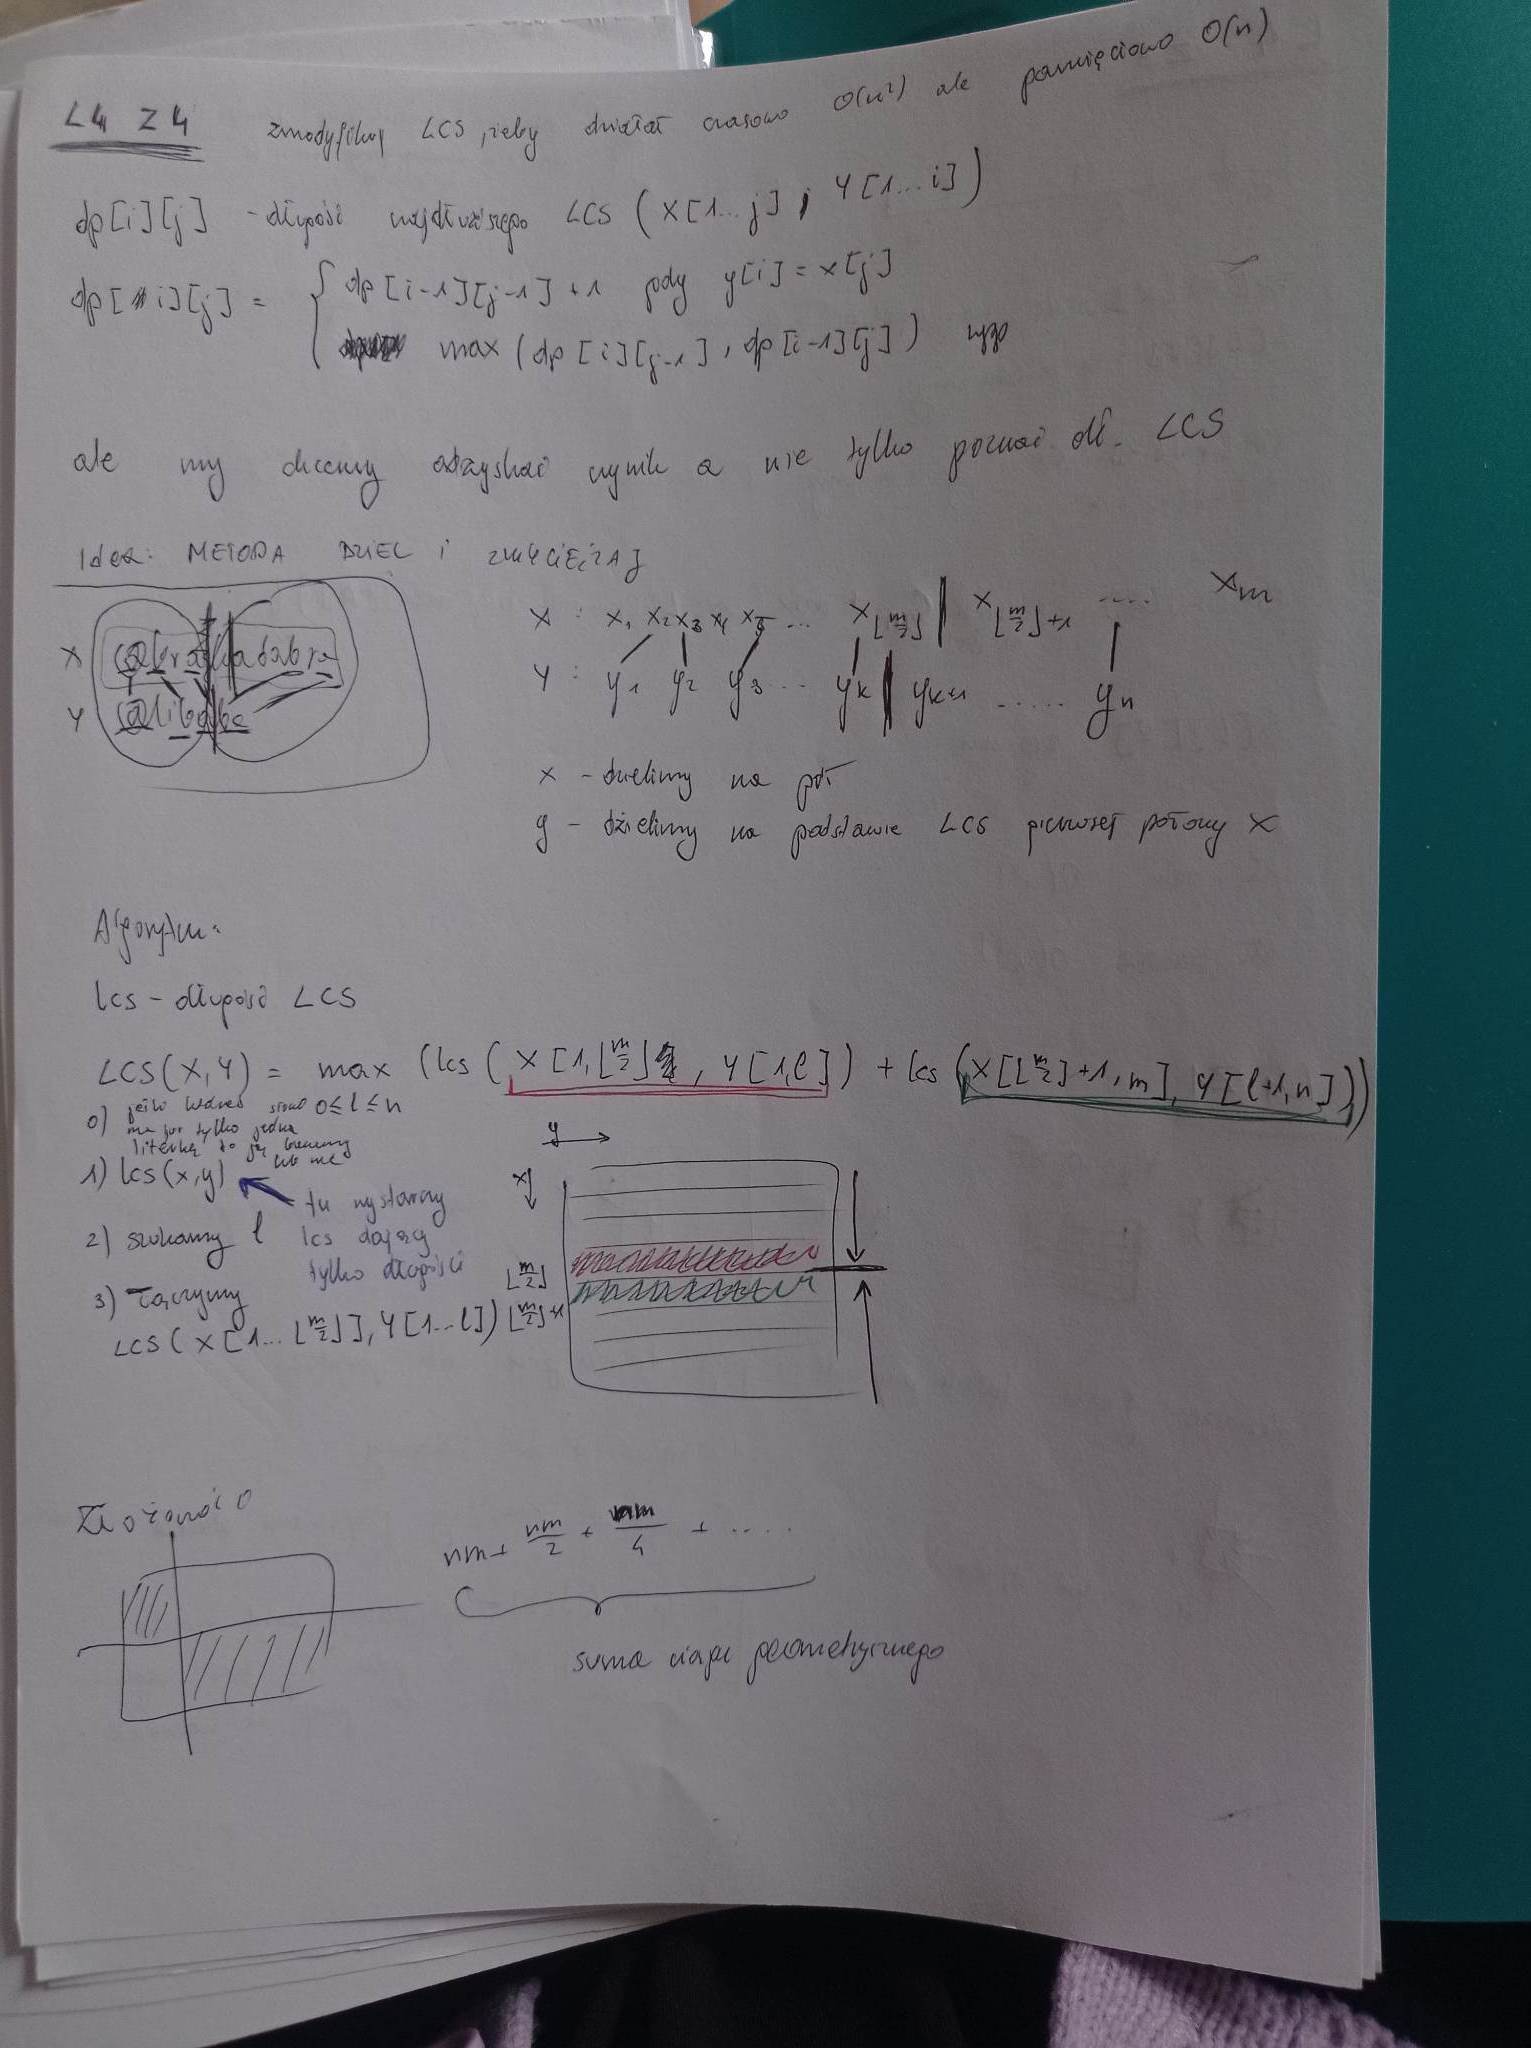 L4 Z4 zmodyfikuj LCS, żeby działał czasowo O(n²) ale pamięciowo O(n)
dp[i][j] - długość najdłuższego LCS (X[1...j], Y[1...i])
dp[i][j] = { dp[i-1][j-1] + 1 gdy y[i] = x[j]
max (dp[i][j-1], dp[i-1][j]) wpp
ale my chcemy odzyskać wynik a nie tylko poznać dł. LCS
Idea: METODA DZIEL i ZWYCIĘŻAJ
X
Y
X : x₁ x₂ x₃ x₄ x₅ ... x⌊m/2⌋ | x⌊m/2⌋+1 ..... xm
Y : y₁ y₂ y₃ ... yk | yk+1 ..... yn
x - dzielimy na pół
y - dzielimy na podstawie LCS pierwszej połowy X
Algorytm:
lcs - długość LCS
LCS(X,Y) = max (lcs (X[1,⌊m/2⌋], Y[1,l]) + lcs (X[⌊m/2⌋+1, m], Y[l+1,n]))
0≤l≤n
0) jeśli słowo
ma już tylko jedną
literkę to ją bierzemy
lub nie
1) lcs(x,y)
tu wystarczy
lcs dający
tylko długość
2) szukamy l
3) łączymy
LCS(X[1...⌊m/2⌋], Y[1...l])
y
x
⌊m/2⌋
⌊m/2⌋+1
Złożoność
nm + nm/2 + nm/4 + .....
suma ciągu geometrycznego